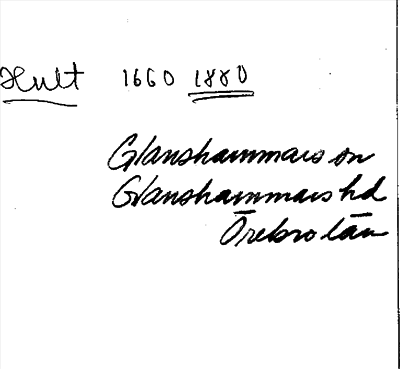 Hult 1660 1880
Glanshammars sn
Glanshammars hd
Örebro län